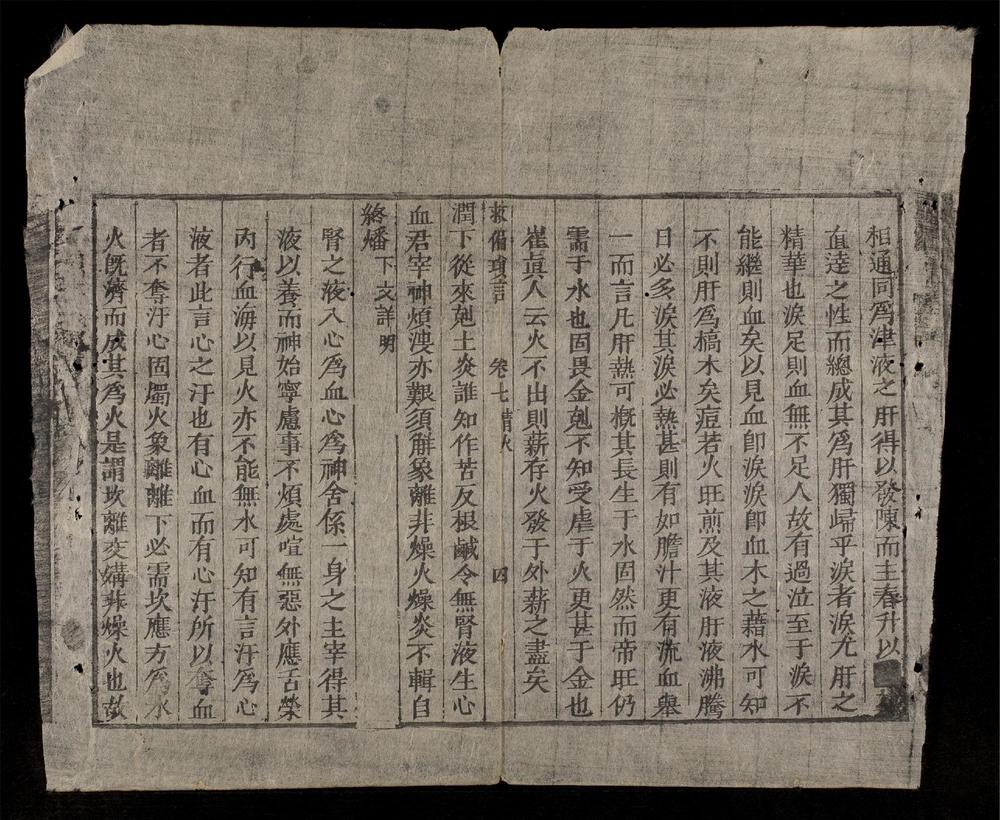 相通同爲津液之肝得以發陳而主春升以
直達之性而總成其爲肝獨歸乎淚者淚尤肝之
精華也淚足則血無不足人故有過泣至于淚不
能繼則血矣以見血卽淚淚卽血木之藉水可知
不則肝爲槁木矣痘若火旺煎及其液肝液沸騰
日必多淚其淚必熱甚則有如膽汁更有流血舉
一而言凡肝熱可概其長生于水固然而帝旺仍
需于水也固畏金剋不知受虐于火更甚于金也
崔眞人云火不出則薪存火發于外薪之盡矣
救偏瑣言 卷七 精火 四
潤下從來剋土炎誰知作苦反根鹹令無腎液生心
血君宰神煩溲亦艱須解象離非燥火燥炎不輯自
終燔下文詳明
腎之液入心爲血心爲神舍係一身之主宰得其
液以養而神始寧慮事不煩處喧無惡外應舌榮
內行血海以見火亦不能無水可知有言汗爲心
液者此言心之汗也有心血而有心汗所以奪血
者不奪汗心固燭火象離離下必需坎應方爲水
火旣濟而成其爲火是謂坎離交媾非燥火也故